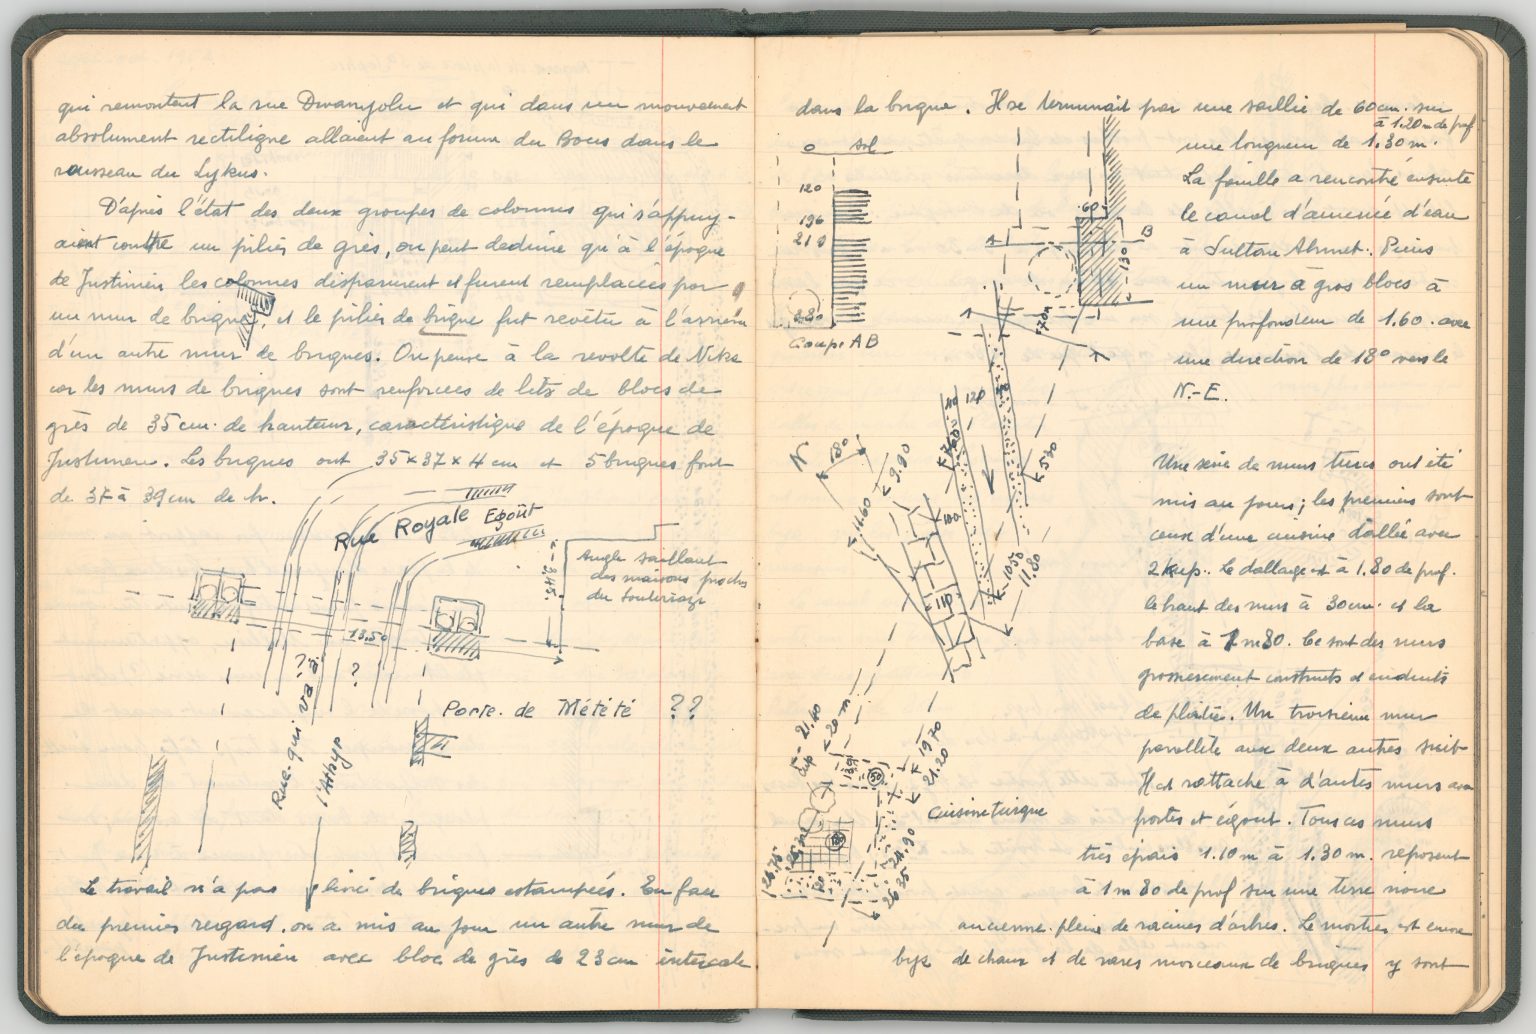 qui remontent la rue Divanyolu et qui dans un mouvement
absolument rectiligne allaient au forum du Bovis dans le
ruisseau du Lykus.
D'après l'état des deux groupes de colonnes qui s'appuy-
aient contre un pilier de grès, on peut deduire qu'à l'époque
de Justinien les colonnes disparurent et furent remplacées par
un mur de brique, et le pilier de brique fut revêtu à l'arrière
d'un autre mur de briques. On pense à la revolte de Nika
car les murs de briques sont renforcées de lits de blocs de
grès de 35 cm. de hauteur, caractéristique de l'époque de
Justinien. Les briques ont 35 x 37 x 4 cm et 5 briques font
de 37 à 39 cm de h.
Rue Royale Egoût
Angle saillant
des maisons proches
du
3.45
13.50
? ?
Rue qui va à
l'Athyr
Porte de Météte ??
Le travail n'a pas livré de briques estampées. En face
du premier regard, on a mis au jour un autre mur de
l'époque de Justinien avec bloc de grès de 23 cm intercale
dans la brique. Il se terminait par une saillie de 60 cm. sur
à 1.20 m de prof
une longueur de 1.30 m.
La fouille a rencontré ensuite
le canal d'amenée d'eau
à Sultan Ahmet. Puis
un mur à gros blocs à
une profondeur de 1.60. avec
une direction de 18° vers le
N.-E.
0 sol
120
196
210
280
Coupe AB
60
A B
130
70
N 180
9.90
11.60
40 120
5.30
100
10.50
11.80
110
Une série de murs turcs ont été
mis au jour; les premiers sont
ceux d'une cuisine dallée avec
2 kup. Le dallage est à 1.80 de prof.
le haut des murs à 30 cm. et la
base à 1 m 80. Ce sont des murs
grossierement construits et enduits
de platre. Un troisieme mur
parallèle aux deux autres suit
Il est rattaché à d'autres murs avec
portes et égout. Tous ces murs
très épais 1.10 m à 1.30 m. reposent
à 1 m 80 de prof sur une terre noire
ancienne pleine de racines d'arbres. Le mortier est encore
de chaux et de rares morceaux de briques y sont
kup - 21.40
20 m.
19.70
21.20
50
cuisine turque
24.75
24.90
26.35